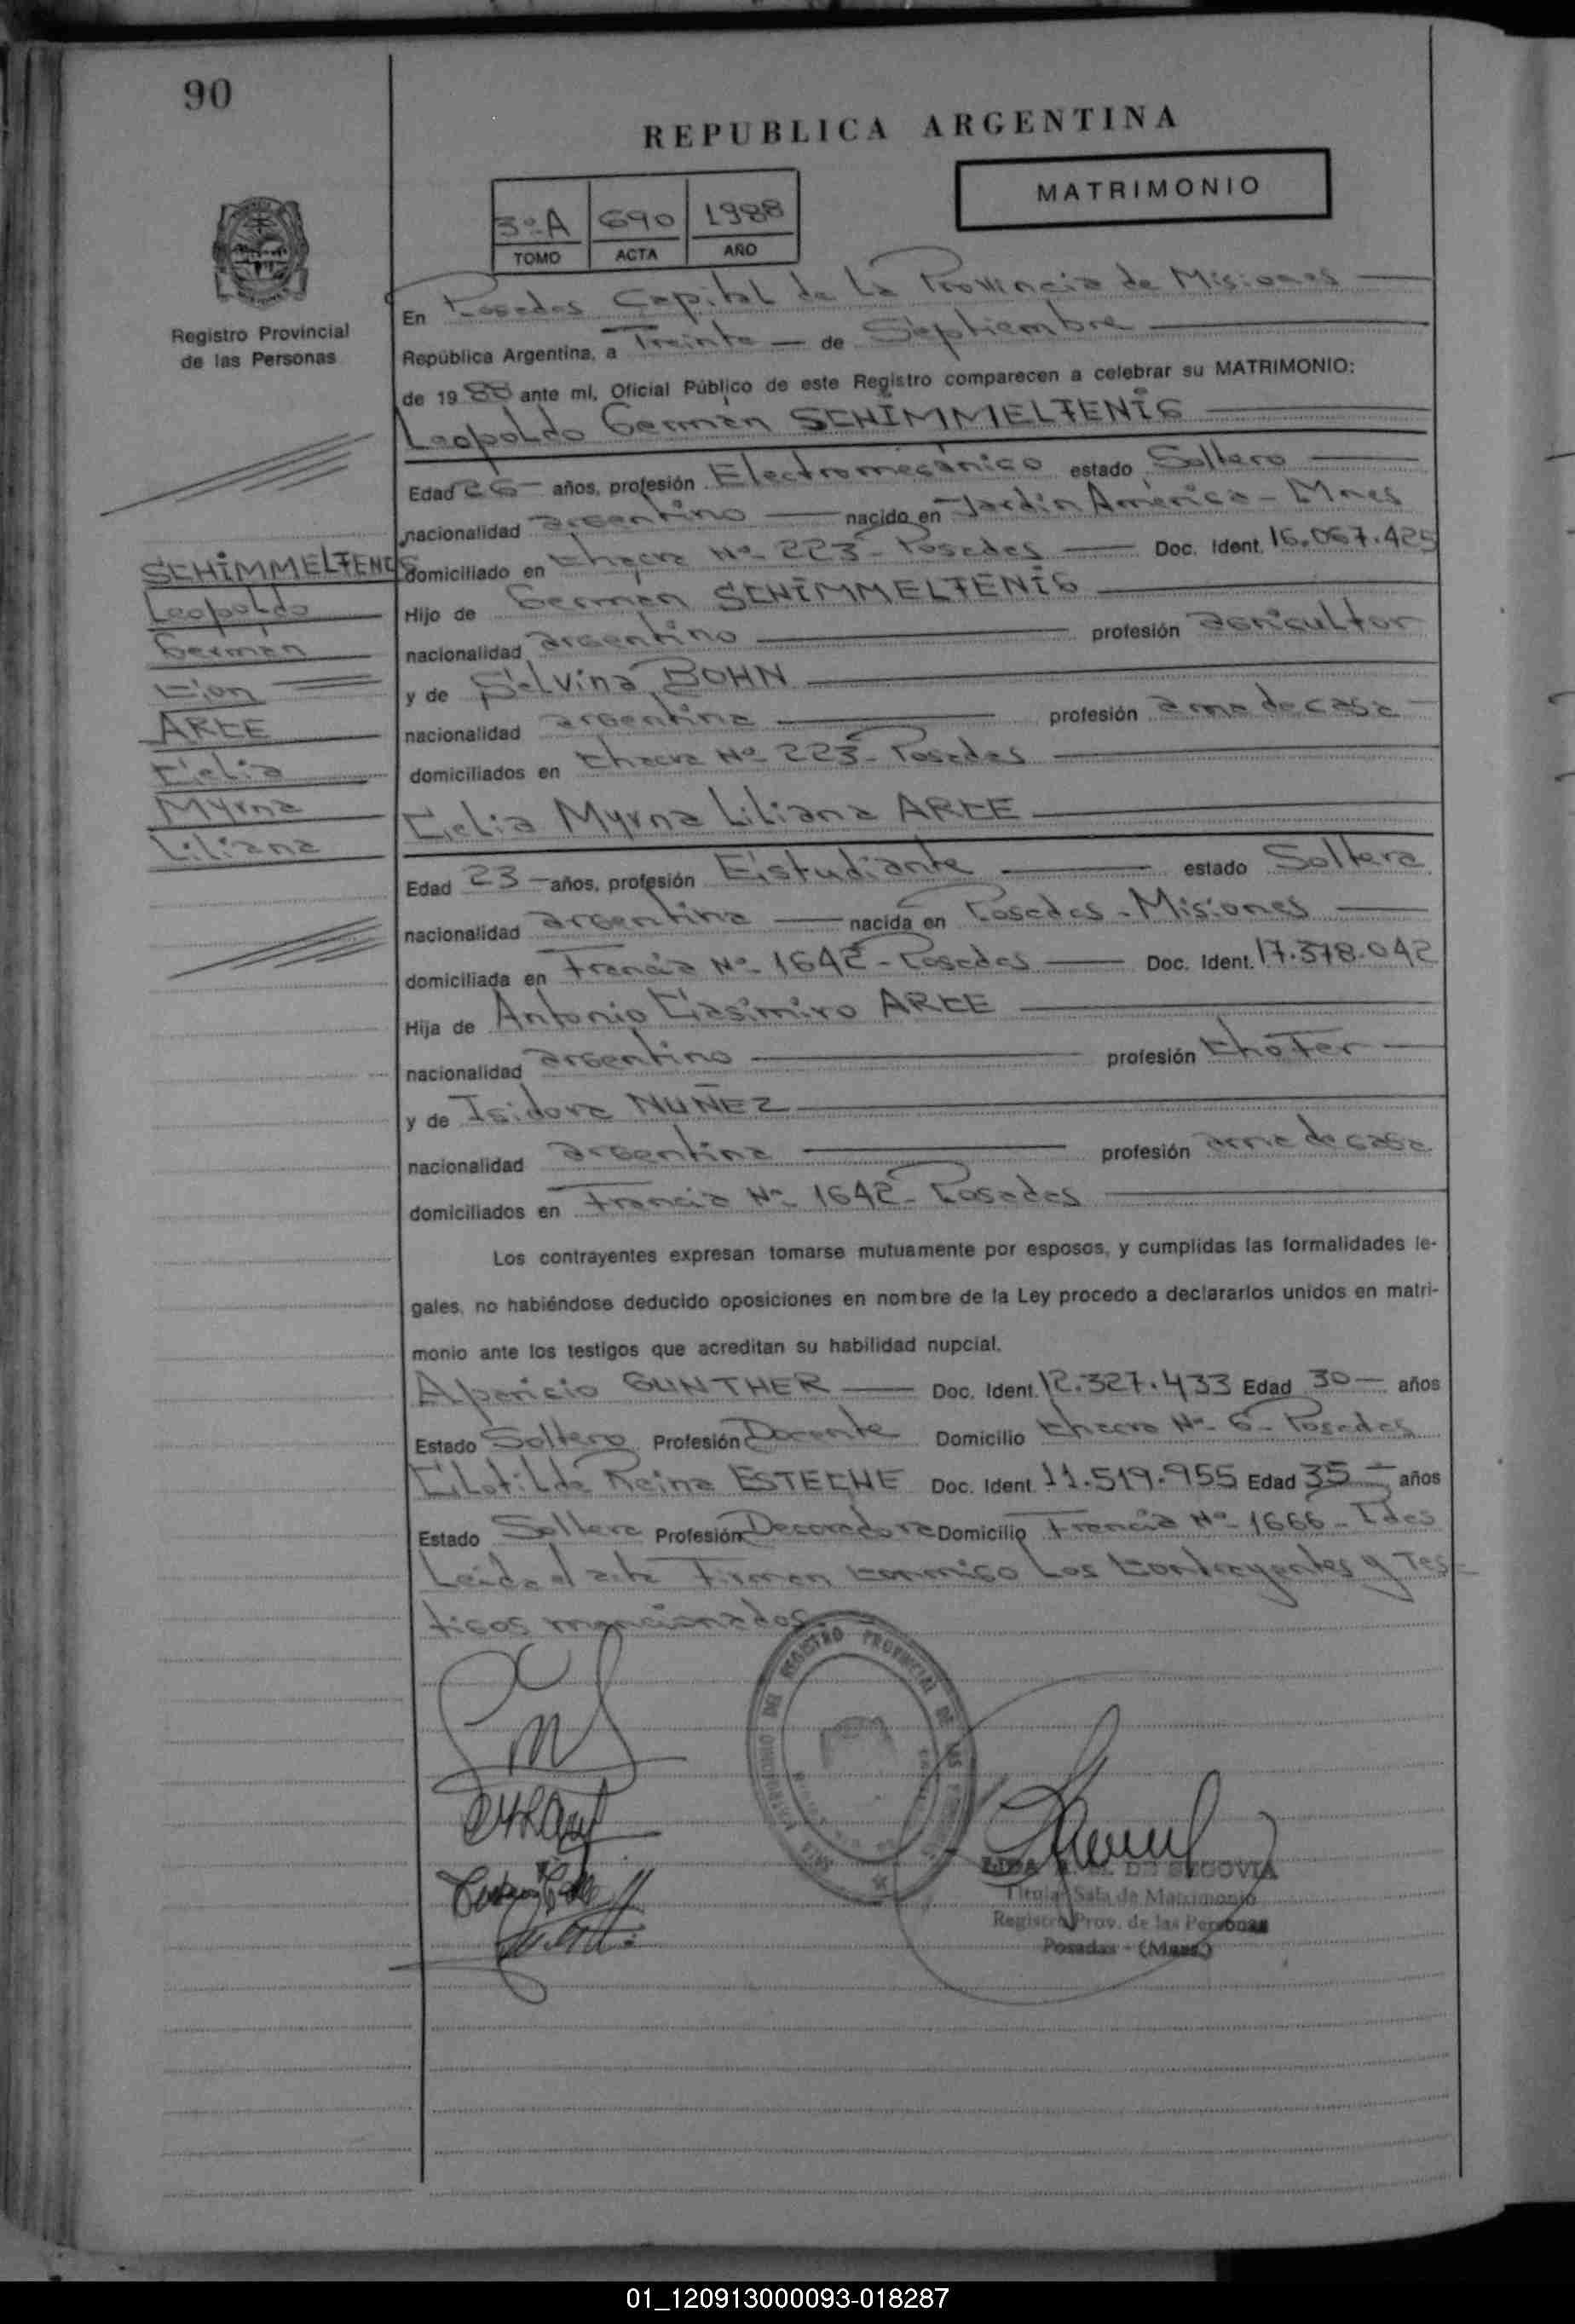 90
REPUBLICA ARGENTINA
MATRIMONIO
3º A 690 1988
TOMO ACTA AÑO
Registro Provincial
de las Personas
En Posadas Capital de La Provincia de Misiones
República Argentina, a Treinta de Septiembre
de 19 88 ante mí, Oficial Público de este Registro comparecen a celebrar su MATRIMONIO:
Leopoldo Germán SCHIMMELFENIG
Edad 26 años, profesión Electromecánico estado Soltero
nacionalidad argentino nacido en Jardín América - Mnes
domiciliado en Chacra Nº 223 - Posadas Doc. Ident. 16.067.425
Hijo de German SCHIMMELFENIG
nacionalidad argentino profesión agricultor
y de Selvina BOHN
nacionalidad argentina profesión ama de casa
domiciliados en Chacra Nº 223 - Posadas
SCHIMMELFENIG
Leopoldo
Germán
Con
ARCE
Celia
Myrna
Liliana
Celia Myrna Liliana ARCE
Edad 23 años, profesión Estudiante estado Soltera
nacionalidad argentina nacida en Posadas - Misiones
domiciliada en Francia Nº 1642 - Posadas Doc. Ident. 17.378.042
Hija de Antonio Casimiro ARCE
nacionalidad argentino profesión Chófer
y de Isidora NUÑEZ
nacionalidad argentina profesión ama de casa
domiciliados en Francia Nº 1642 - Posadas
Los contrayentes expresan tomarse mutuamente por esposos, y cumplidas las formalidades le-
gales, no habiéndose deducido oposiciones en nombre de la Ley procedo a declararlos unidos en matri-
monio ante los testigos que acreditan su habilidad nupcial.
Aparicio GUNTHER Doc. Ident. 12.327.433 Edad 30 años
Estado Soltero Profesión Docente Domicilio Chacra Nº 6 - Posadas
Clotilde Reina ESTECHE Doc. Ident. 11.519.955 Edad 35 años
Estado Soltera Profesión Decoradora Domicilio Francia Nº 1666 - Pdas
Leída el acta Firman conmigo Los Contrayentes y Tes-
tigos mencionados
REGISTRO PROVINCIAL DE LAS
DE SEGOVIA
Titular Sala de Matrimonio
Registro Prov. de las Personas
Posadas - (Mnes)
01_120913000093-018287